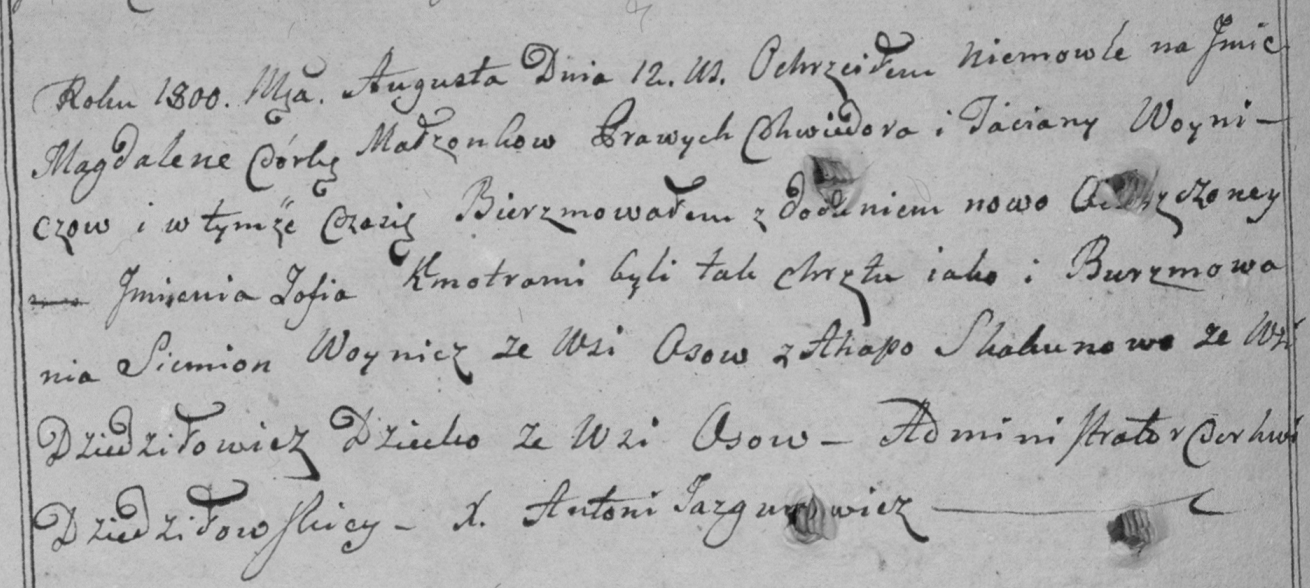 Roku 1800. Mca. Augusta Dnia 12. Ochrzciłem Niemowle na Jmie
Magdalene Córkę Małżonkow Prawych Chwiedora i Taciany Woyni-
czow i w tymże Czasie Bierzmowałem z dodaniem nowo Ochrzczoney
Jmienia Zofia Kmotrami byli tak chrztu iako i Burzmowa
nia Siemion Woynicz ze Wsi Osow z Ahapo Skakunowo ze Wsi
Dziedziłowicz Dziecko ze Wsi Osow - Administrator Cerkwi
Dziedziłowskiey - X. Antoni Jazgunowicz